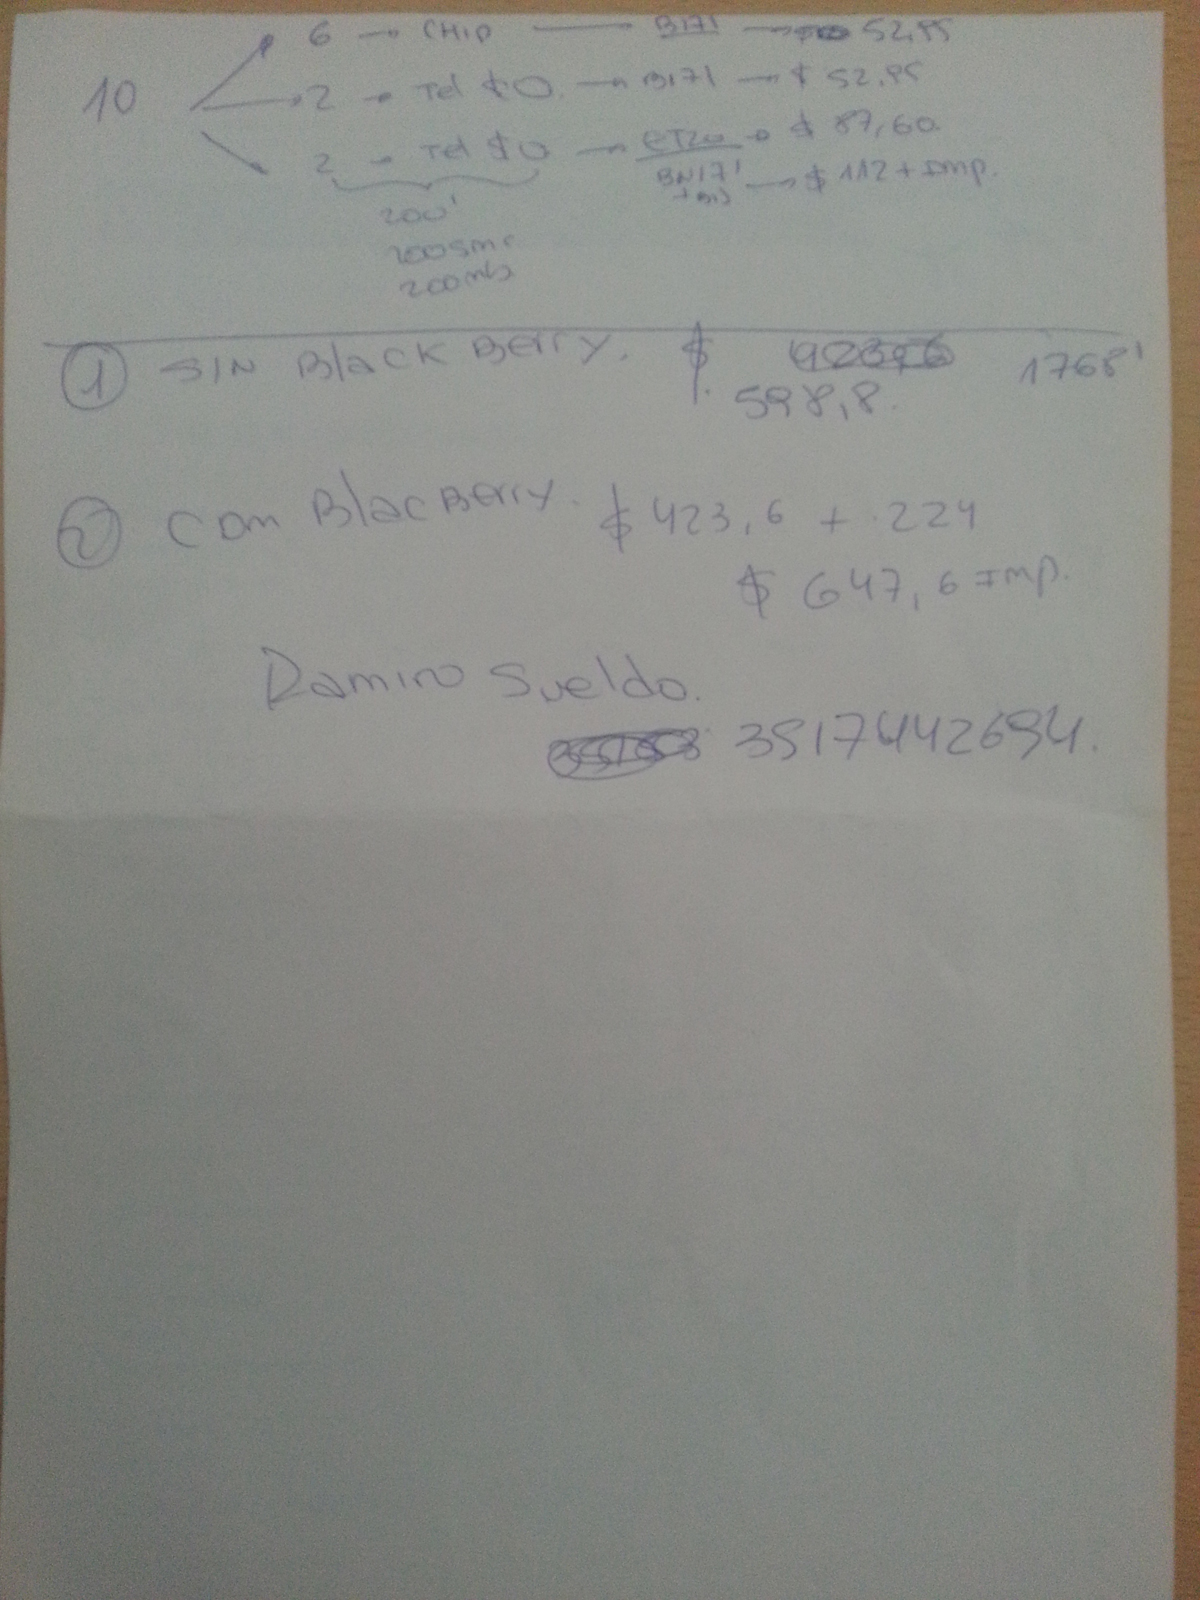 6 → CHIP — B171 → 52,95
10 2 → Tel $0. → B171 → $ 52,95
2 → Tel $0 → ET20 → $ 87,60
BN171 → $ 112 + Imp.
200'
200 sms
200 mb
1 SIN BlackBerry. $ 1768'
598,8.
2 Con BlacBerry. $ 423,6 + 224
$ 647,6 Imp.
Ramiro Sueldo.
3517442694.